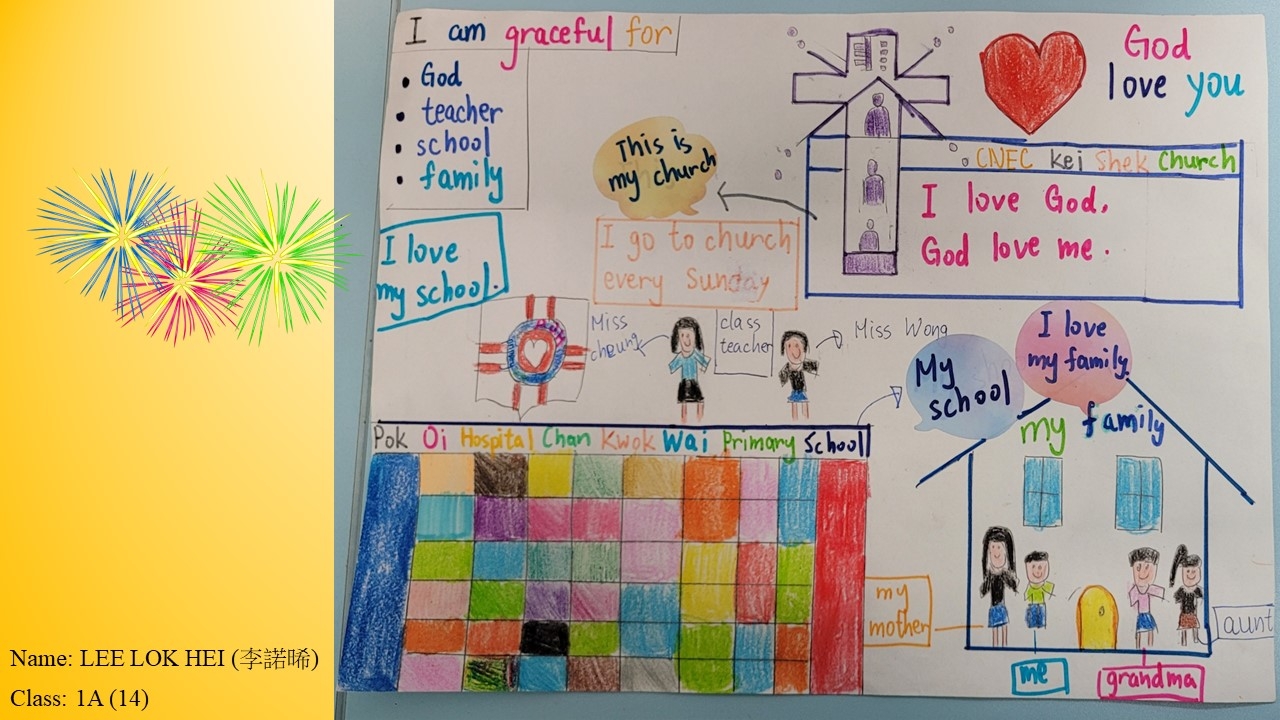 I am graceful for
• God
• teacher
• school
• family
I love
my school.
This is
my church
I go to church
every Sunday
God
love you
CNEC Kei Shek Church
I love God,
God love me.
Miss
cheung
class
teacher
Miss Wong
My
school
I love
my family
my family
Pok Oi Hospital Chan Kwok Wai Primary School
my
mother
me
grandma
aunt
Name: LEE LOK HEI (李諾晞)
Class: 1A (14)